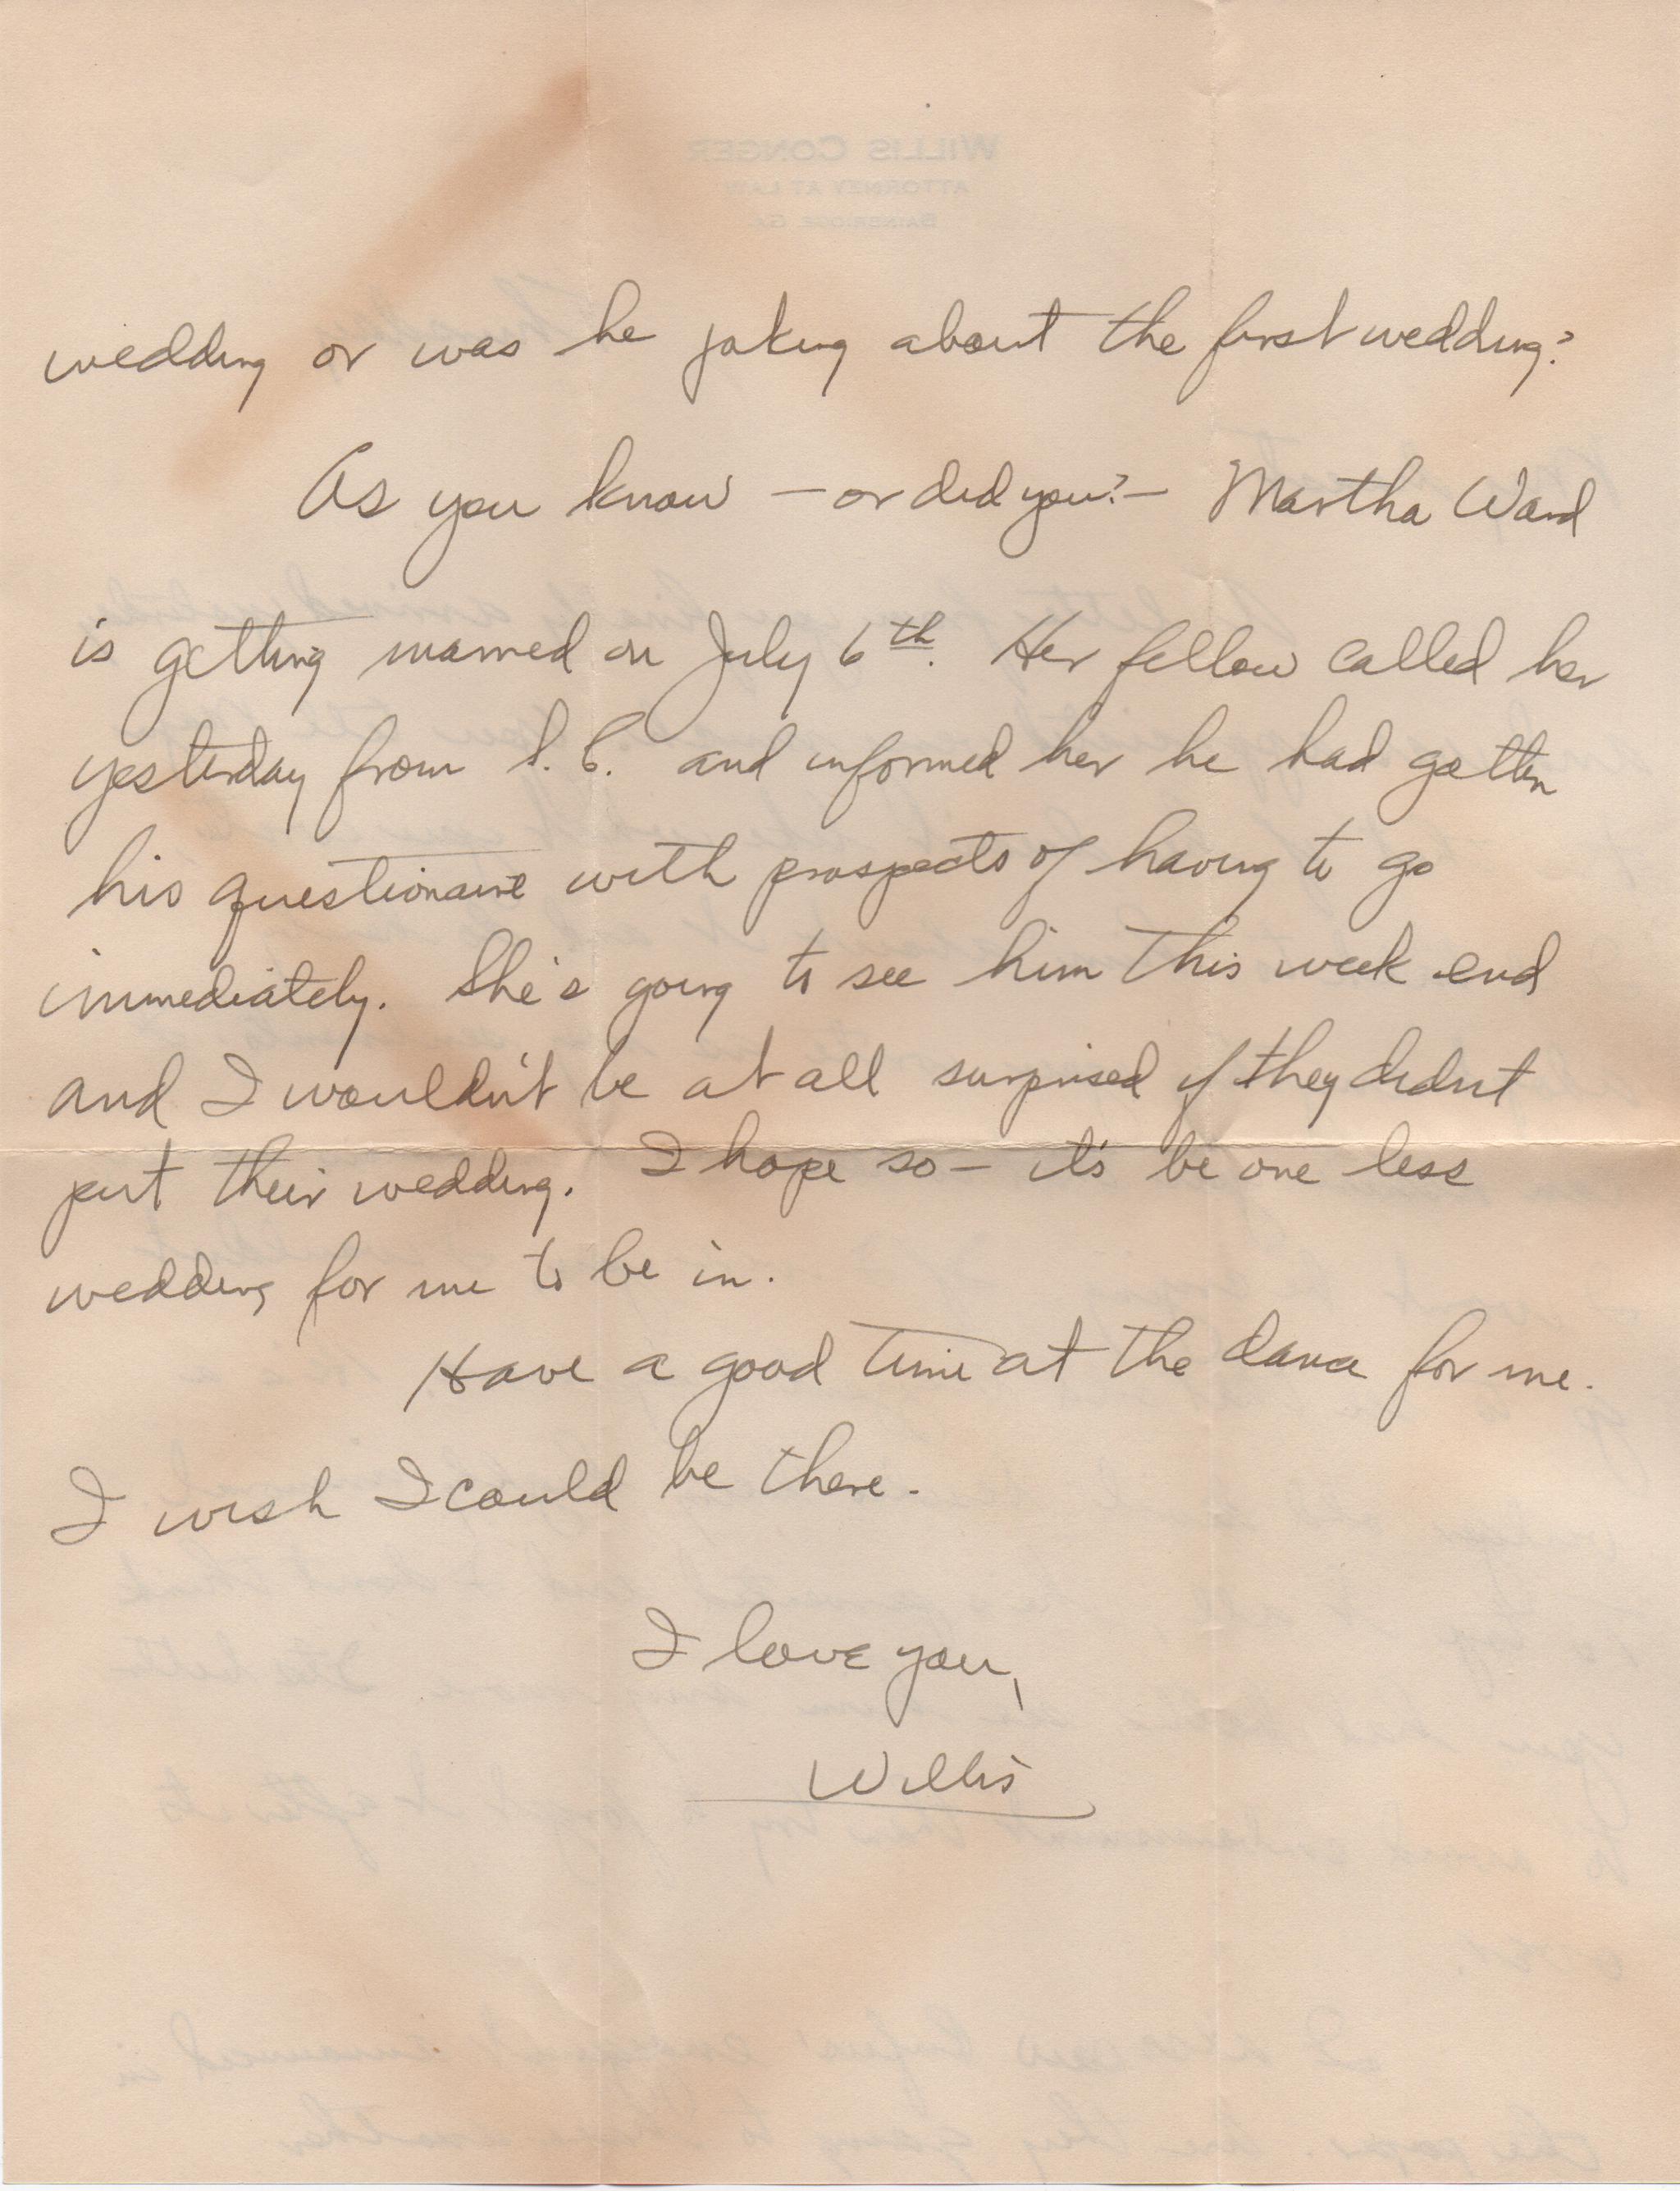 WILLIS CONGER
ATTORNEY AT LAW
BAINBRIDGE, GA.
wedding or was he joking about the first wedding?
As you know – or did you? – Martha Ward
is getting married on July 6th. Her fellow called her
yesterday from S. C. and informed her he had gotten
his questionaire with prospects of having to go
immediately. She's going to see him this week end
and I wouldn't be at all surprised if they didn't
put their wedding. I hope so – it's be one less
wedding for me to be in.
Have a good time at the dance for me.
I wish I could be there.
I love you,
Willis